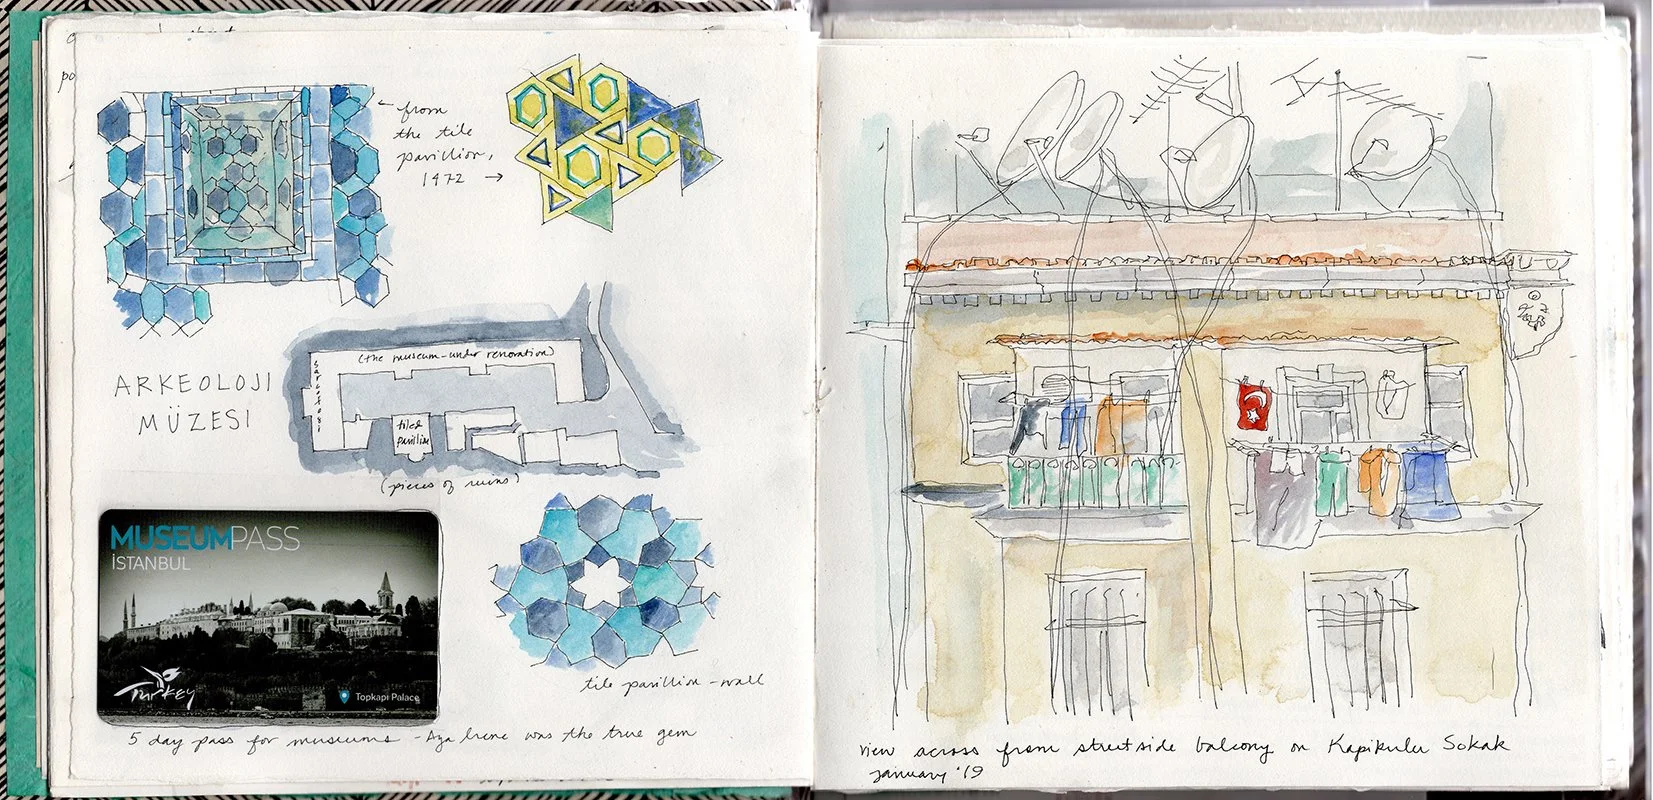 from
the tile
pavillion,
1472 →
ARKEOLOJI
MÜZESI
(the museum - under renovation)
sarcofogi
tiled
pavillion
(pieces of ruins)
MUSEUMPASS
İSTANBUL
Turkey
Topkapı Palace
tile pavillion - wall
5 day pass for museums - Aya Irene was the true gem
view across from streetside balcony on Kapikulu Sokak
January '19